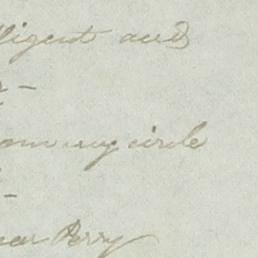 lligent and
-
om my circle
-
ear Perry